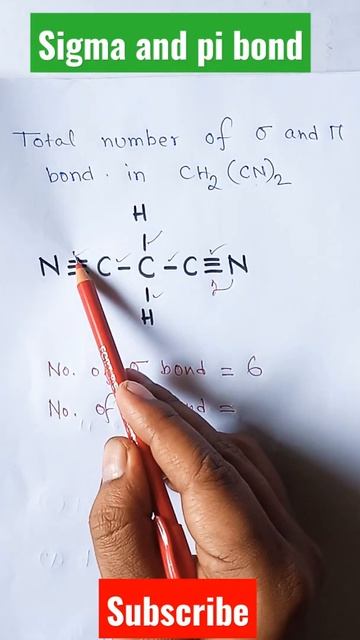 Sigma and pi bond
Total number of σ and π
bond. in CH₂(CN)₂
H
N≡C-C-C≡N
2
H
No. of σ bond = 6
No. of =
Subscribe